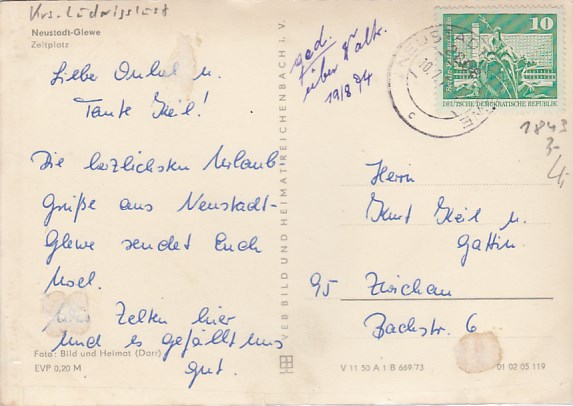 Krs. Ludwigslust
Neustadt-Glewe
Zeltplatz
Liebe Onkel u.
Tante Keil!
Die herzlichsten Urlaub-
Grüße aus Neustadt-
Glewe sendet Euch
Zelten hier
und es gefällt uns
gut.
Foto: Bild und Heimat (Darr)
EVP 0,20 M
VEB BILD UND HEIMAT REICHENBACH I. V.
über
19/8 74
NEUSTADT
10
DEUTSCHE DEMOKRATISCHE REPUBLIK
1843
3,-
4,-
Herrn
Kurt Keil u.
Gattin
95 Zwickau
Bachstr. 6
V 11 50 A 1 B 669/73
01 02 05 119